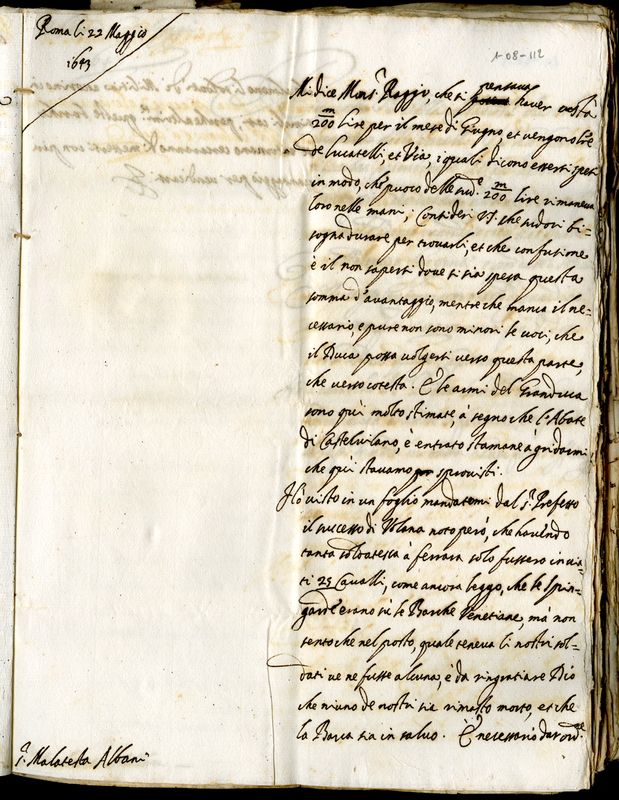 Roma li 22 Maggio
1643
1-08-112
Mi dice Mons.r Raggio, che si pensava haver costà
m/200 lire per il mese di Giugno et vengono l're
de Lucatelli, et Via, i quali dicono essersi spesi
in modo, che puoco delle sud.e m/200 lire rimaneva
loro nelle mani; Consideri V.S. che sudori bi=
sogna durare per trovarli, et che confusione
è il non sapersi dove si sia spesa questa
somma d'avantaggio, mentre che manca il ne=
cessario, e pure non sono minori le voci, che
il Duca possa volgersi verso questa parte,
che verso cotesta. E le armi del Granduca
sono quì molto stimate, à segno che l'Abate
di Castelvilano, è entrato stamane à gridarmi
che quì stavamo sprovisti.
Hò visto in un foglio mandatomi dal s.r Prefetto
il successo di Volana noto però, che havendo
tanta soldatesca à ferrara solo fussero invia=
ti 25 Cavalli, come ancora leggo, che le spin=
garde erano sù le Barche Venetiane, mà non
sento che nel posto, quale teneva li nostri sol=
dati ve ne fusse alcuna, è da ringratiare Dio
che niuno de nostri sia rimasto morto, et che
la Barca sia in salvo. È necessario dar ord.e
s.r Malatesta Albani